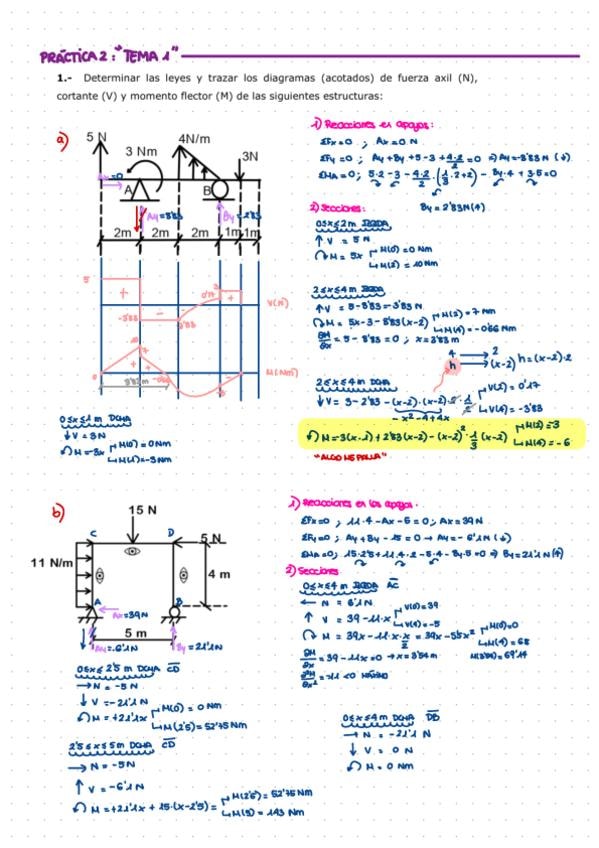 PRÁCTICA 2: "TEMA 1"
1.- Determinar las leyes y trazar los diagramas (acotados) de fuerza axil (N),
cortante (V) y momento flector (M) de las siguientes estructuras:
a)
5 N
3 Nm
4N/m
3N
Ax=0
A
B
Ay=3'83
By=2'83
2m 2m 2m 1m 1m
5
+
-3'83
-
3'83
0'17
3
+
V(N)
10
3'83 m
-0'66
M(Nm)
0≤x≤1 m DCHA
↓V = 3N
M=-3x M(0)=0Nm
M(1)=-3Nm
1) Reacciones en apoyos:
ΣFx=0 ; Ax=0 N
ΣFy=0 ; Ay+By+5-3+4·2/2=0 ⇒ Ay=-8'83N (↓)
ΣMA=0; 5·2-3-4·2/2·(1/3·2+2)-By·4+3·5=0
By=2'83N(↑)
2) Secciones:
0≤x≤2 m IZQDA
↑V = 5 N
M = 5x M(0)=0Nm
M(2)=10Nm
2≤x≤4 m IZQDA
↑V = 5-8'83=-3'83 N
M= 5x-3-8'83(x-2) M(2)=7 Nm
M(4)=-0'66 Nm
∂M/∂x = 5-8'83=0 ; x=3'83m
4 → 2
h → (x-2) h=(x-2)·2
2≤x≤4 m DCHA
↓V= 3-2'83-(x-2)·(x-2)·2·1/2 V(2)=0'17
V(4)=-3'83
-x²-4+4x
M=-3(x-1)+2'83(x-2)-(x-2)²·1/3(x-2) M(2)=-3
M(4)=-6
"ALGO ME FALLA"
b)
15 N
C
D
5 N
11 N/m
4 m
A
B
Ax=39N
5 m
Ay=6'1N
By=21'1N
1) Reacciones en los apoyos.
ΣFx=0 ; 11·4-Ax-5=0; Ax=39N
ΣFy=0 ; Ay+By-15=0 → Ay=-6'1N (↓)
ΣMA=0; 15·2'5+11·4·2-5·4-By·5=0 ⇒ By=21'1N(↑)
2) Secciones
0≤x≤4 m IZQDA AC
← N = 6'1N
↑ V = 39-11·x V(0)=39
V(4)=-5
M = 39x-11·x·x/2 = 39x-5'5x² M(0)=0
M(4)=68
M(3'54)=69'14
∂M/∂x = 39-11x=0 → x=3'54m
∂²M/∂x² = -11 <0 MÁXIMO
0≤x≤2'5 m DCHA CD
→ N = -5N
↓ V = -21'1 N
M = +21'1x M(0) = 0 Nm
M(2'5)= 52'75 Nm
2'5≤x≤5m DCHA CD
→ N = -5N
↑ V = -6'1N
M = +21'1x + 15·(x-2'5)= M(2'5)= 52'75 Nm
M(5)= 143 Nm
0≤x≤4m DCHA DB
→ N = -21'1 N
↓ V = 0 N
M = 0 Nm